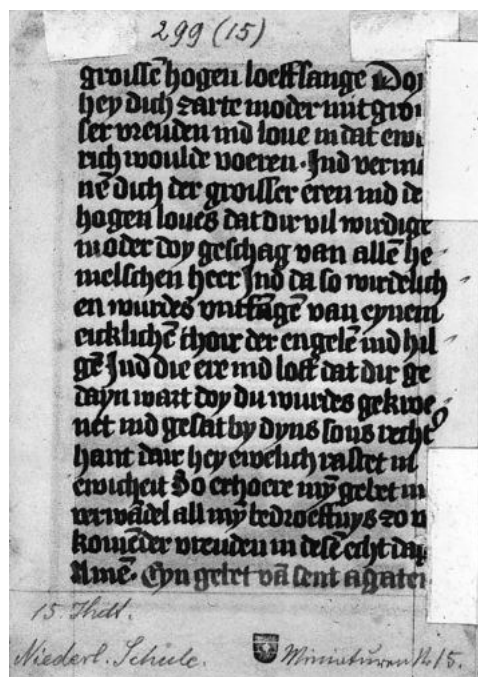 299 (15)
groissē hogen loeffsange Doy
hey dich zarte moder mit groi
ser vreuden ind loue in dat ewi
rich woulde voeren. Ind verma
nē dich der groisser eren ind de
hogen loues dat dir vil wirdige
moder doy geschag van allē he
melschen heer Ind da so wirdelich
en wurdes untfāgē van eynem
eicklichē choir der engelē ind hil
gē Ind die ere ind loff dat dir ge
dayn wart doy du wurdes gekroe
net ind gesat by dyns sons recht
hant dair hey ewelich rastet in
ewicheit So erhoere mȳ gebet in
verwādel all mȳ bedroeffnys zo
komēder vreuden in desē echt dag
Amē. Eyn gebet vā sent agaten
15. Jhdt.
Niederl. Schule.
Miniaturen N. 15.